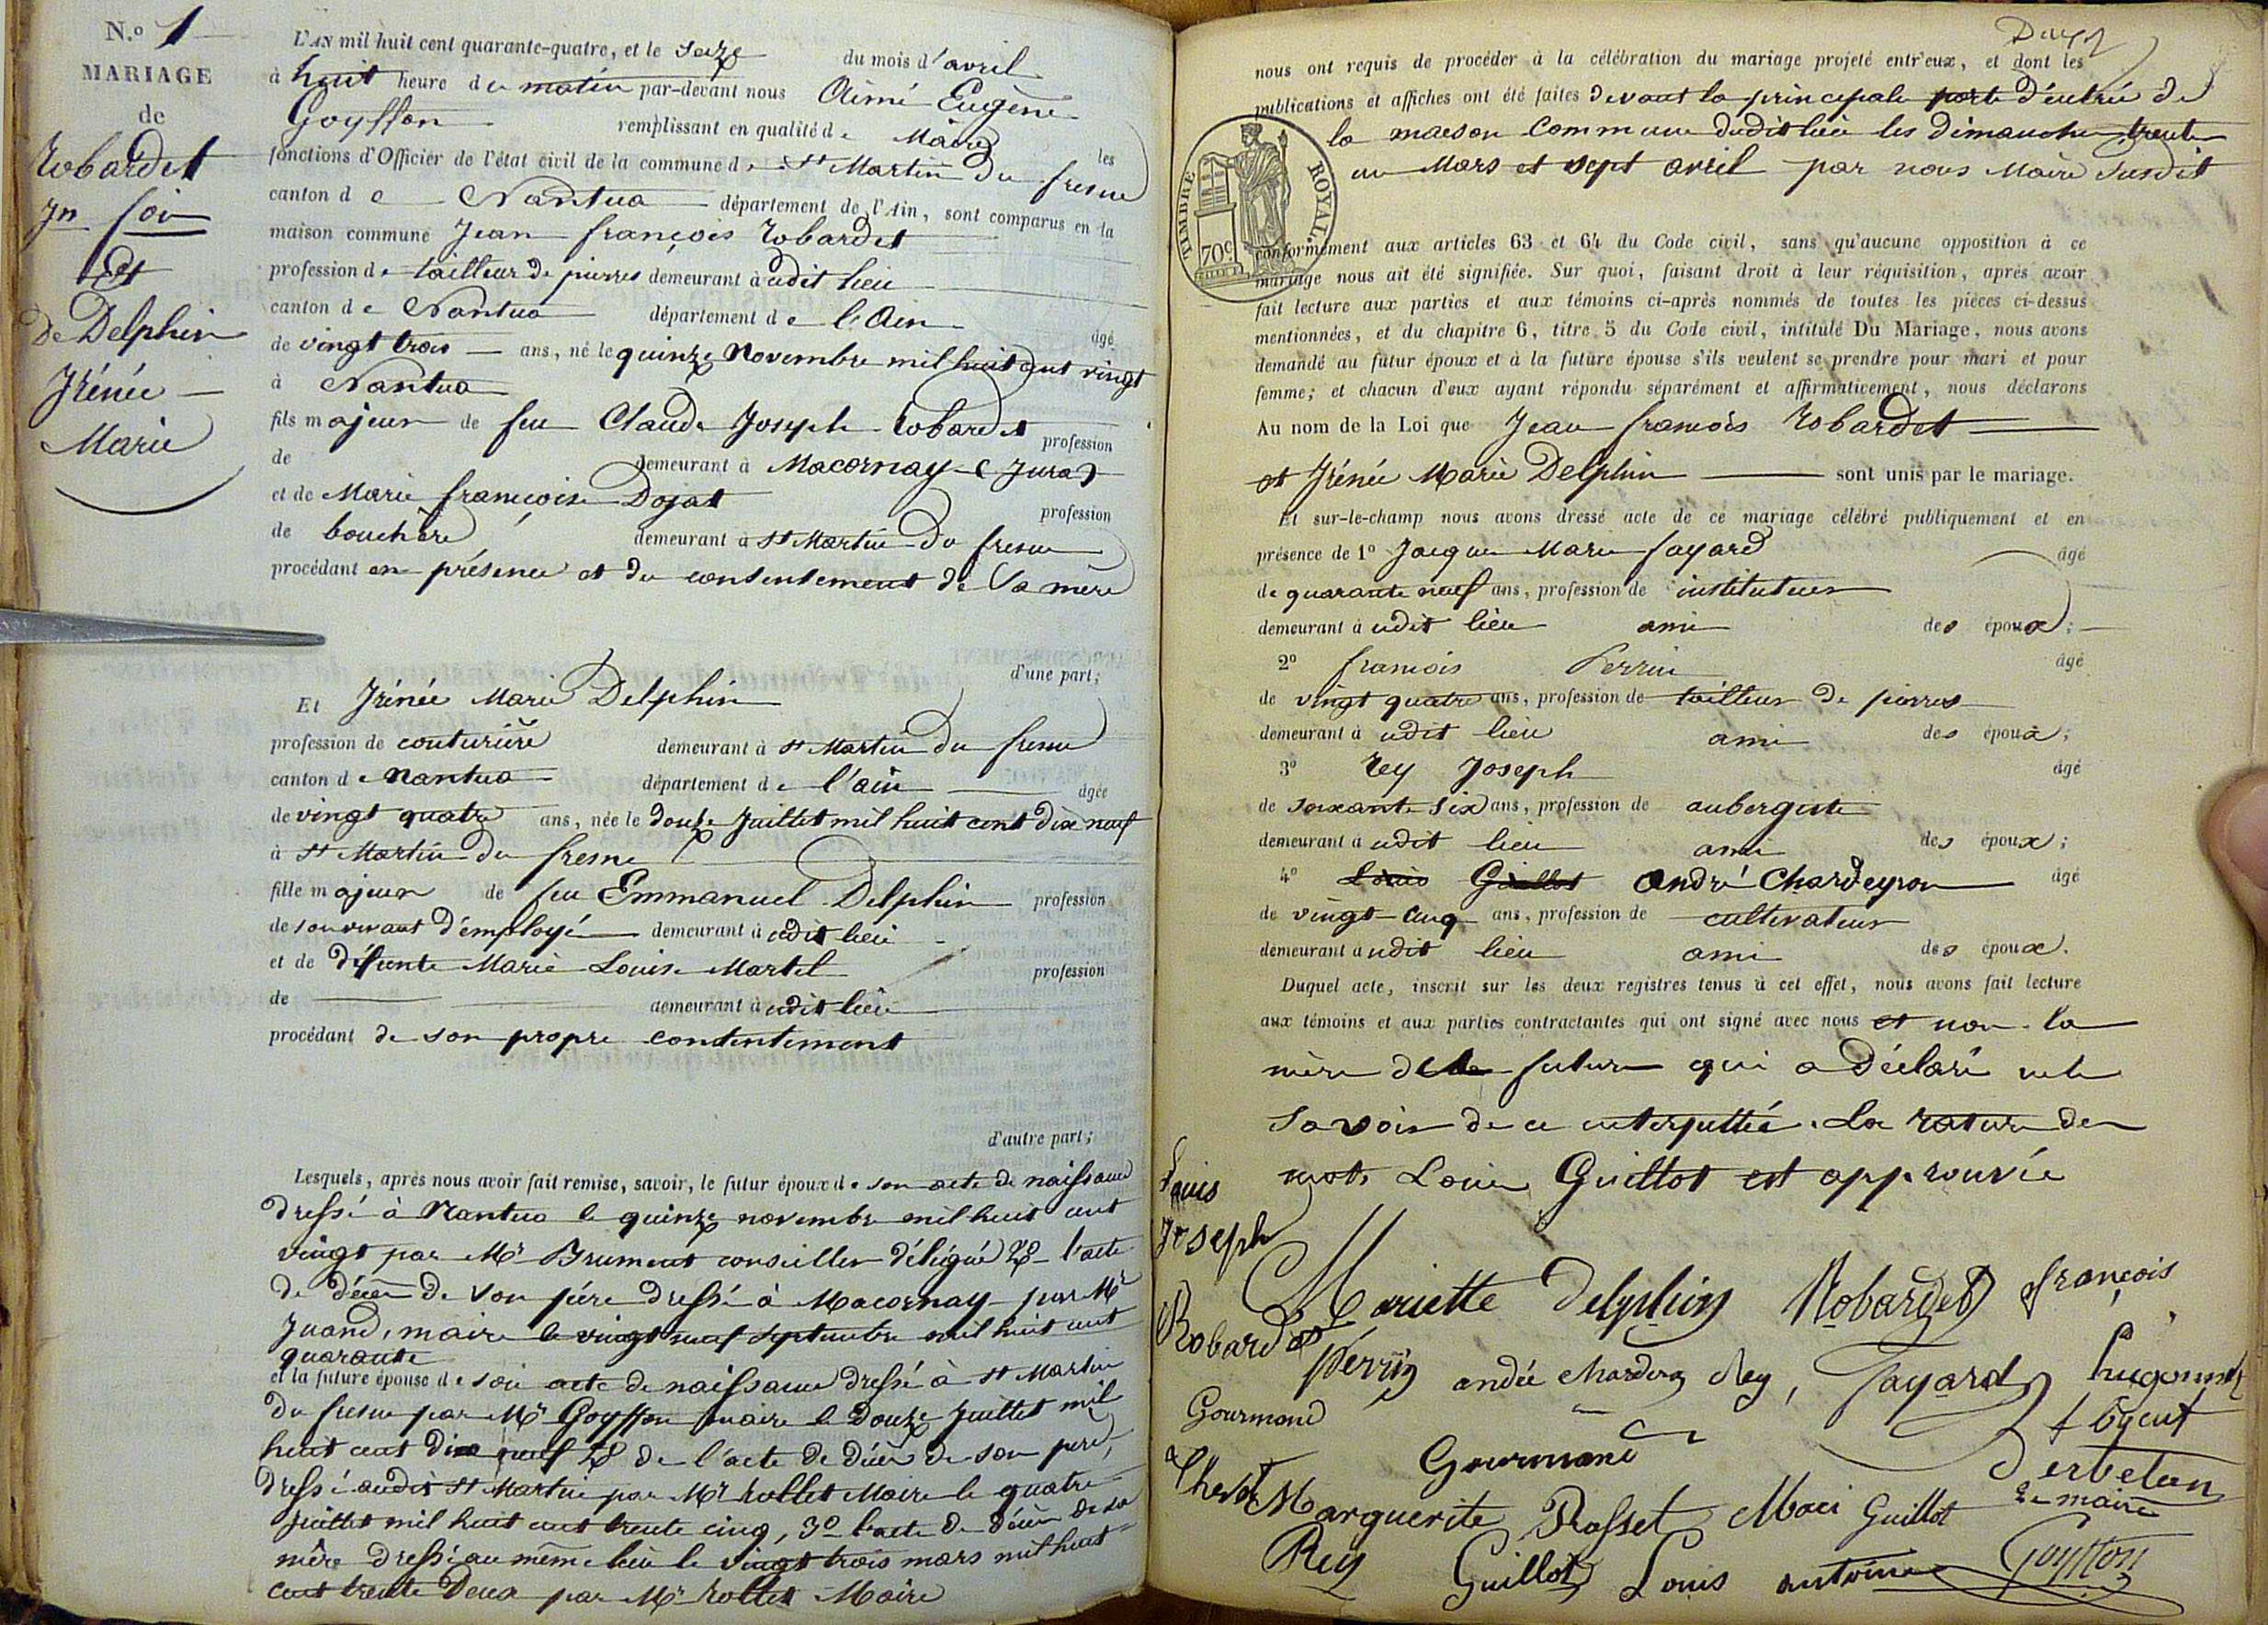 N.o 1
MARIAGE
de
Robardet
Jn fois
Et
de Delphin
Irénée
Marie
L'AN mil huit cent quarante-quatre, et le seize du mois d'avril
à huit heure du matin par-devant nous Aimé Eugène
Goyffon remplissant en qualité de Maire les
fonctions d'Officier de l'état civil de la commune de St Martin du fresne
canton de Nantua département de l'Ain, sont comparus en la
maison commune Jean françois Robardet
profession de tailleur de pierres demeurant à udit lieu
canton de Nantua département de l'Ain âgé
de vingt trois ans, né le quinze Novembre mil huit cent vingt
à Nantua
fils majeur de feu Claude Joseph Robardet profession
de demeurant à Macornay (Jura)
et de Marie françoise Dojat profession
de bouchère demeurant à St Martin du fresne
procédant en présence et du consentement de Sa mère
d'une part;
Et Irénée Marie Delphin
profession de couturière demeurant à St Martin du fresne
canton de Nantua département de l'ain âgée
de vingt quatre ans, née le douze Juillet mil huit cent dix neuf
à St Martin du fresne
fille majeur de feu Emmanuel Delphin profession
de son vivant d'employé demeurant à udit lieu
et de défunte Marie Louise Martel profession
de demeurant à udit lieu
procédant de son propre contentement
d'autre part;
Lesquels, après nous avoir fait remise, savoir, le futur époux de son acte de naissance
dressé à Nantua le quinze novembre mil huit cent
vingt par Mr Brument conseiller délégué 2o l'acte
de décès de son père dressé à Macornay par Mr
Juand, maire le vingt neuf septembre mil huit cent
quarante
et la future épouse de son acte de naissance dressé à St Martin
du fresne par Mr Goyffon maire le douze Juillet mil
huit cent dix neuf 2o de l'acte de décès de son père,
dressé audit St Martin par Mr Rollet Maire le quatre
Juillet mil huit cent trente cinq, 3o l'acte de décès de sa
mère dressé au même lieu le vingt trois mars mil huit
cent trente deux par Mr Rollet Maire
nous ont requis de procéder à la célébration du mariage projeté entr'eux, et dont les
publications et affiches ont été faites devant la principale porte d'entrée de
la maison commune dudit lieu les dimanches trente
un Mars et sept avril par nous Maire susdit
TIMBRE ROYAL
70c
conformément aux articles 63 et 64 du Code civil, sans qu'aucune opposition à ce
mariage nous ait été signifiée. Sur quoi, faisant droit à leur réquisition, après avoir
fait lecture aux parties et aux témoins ci-après nommés de toutes les pièces ci-dessus
mentionnées, et du chapitre 6, titre 5 du Code civil, intitulé Du Mariage, nous avons
demandé au futur époux et à la future épouse s'ils veulent se prendre pour mari et pour
femme; et chacun d'eux ayant répondu séparément et affirmativement, nous déclarons
Au nom de la Loi que Jean francois Robardet
et Irénée Marie Delphin sont unis par le mariage.
Et sur-le-champ nous avons dressé acte de ce mariage célébré publiquement et en
présence de 1o Jacque Marie fayard âgé
de quarante neuf ans, profession de instituteur
demeurant à udit lieu ami des époux;
2o francois Perrin âgé
de vingt quatre ans, profession de tailleur de pierres
demeurant à udit lieu ami des époux;
3o Rey Joseph âgé
de soixante six ans, profession de aubergiste
demeurant à udit lieu ami des époux;
4o Louis Guillot André Chardeyron âgé
de vingt cinq ans, profession de cultivateur
demeurant à udit lieu ami des époux.
Duquel acte, inscrit sur les deux registres tenus à cet effet, nous avons fait lecture
aux témoins et aux parties contractantes qui ont signé avec nous et non la
mère de la futur qui a déclaré ne le
savoir de ce interpellée. La rature des
mots Louis Guillot est approuvée
Louis
Joseph
Robardet
Mariette Delphin Robardet françois
Perrin andré chardeyron Rey, Fayard hugonnet
Gourmand
Gourmand
Thevet Marguerite Rosset Guillot
Le maire
Rey Guillot Louis antoine Goyffon